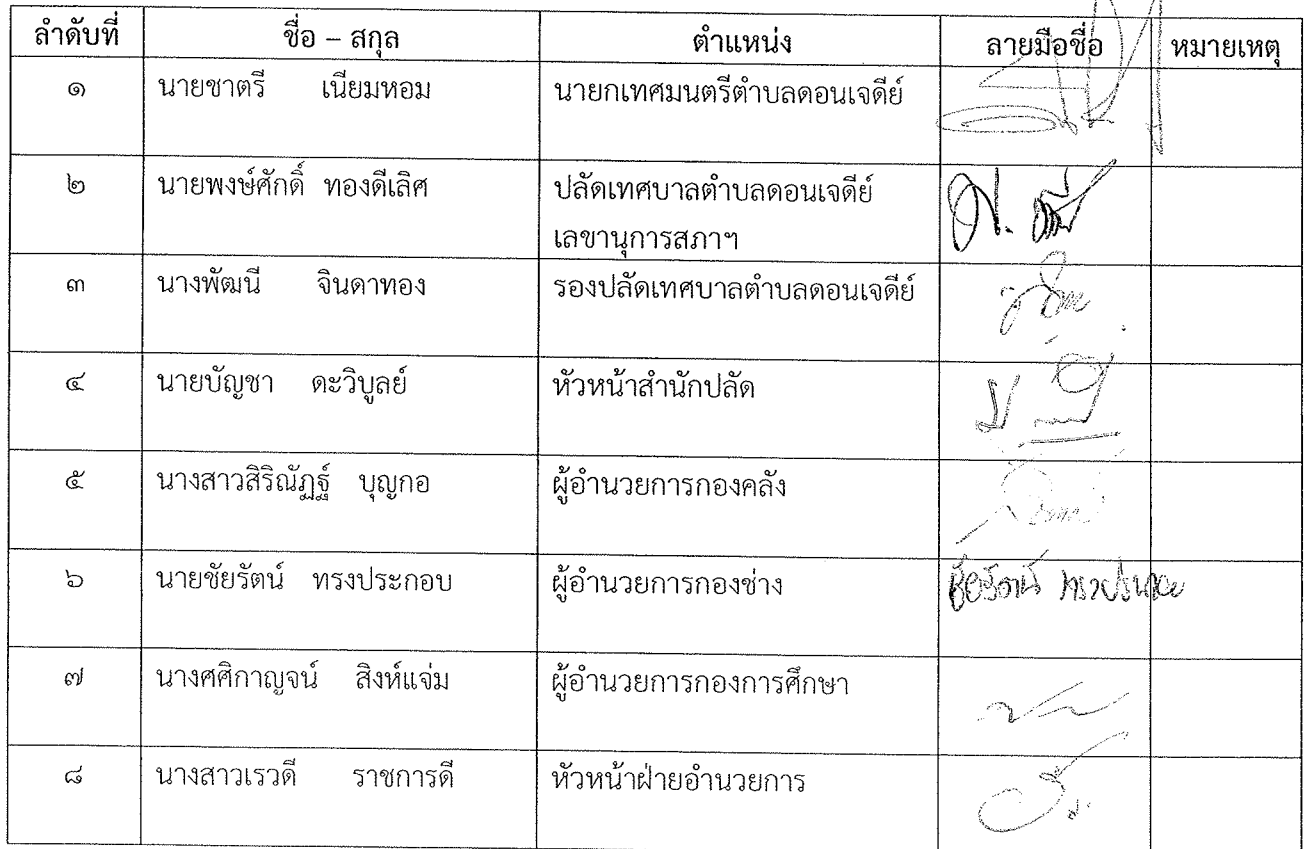 ลำดับที่ ชื่อ – สกุล ตำแหน่ง ลายมือชื่อ หมายเหตุ
๑ นายชาตรี เนียมหอม นายกเทศมนตรีตำบลดอนเจดีย์
๒ นายพงษ์ศักดิ์ ทองดีเลิศ ปลัดเทศบาลตำบลดอนเจดีย์
เลขานุการสภาฯ
๓ นางพัฒนี จินดาทอง รองปลัดเทศบาลตำบลดอนเจดีย์
๔ นายบัญชา ดะวิบูลย์ หัวหน้าสำนักปลัด
๕ นางสาวสิริณัฏฐ์ บุญกอ ผู้อำนวยการกองคลัง
๖ นายชัยรัตน์ ทรงประกอบ ผู้อำนวยการกองช่าง ชัยรัตน์ ทรงประกอบ
๗ นางศศิกาญจน์ สิงห์แจ่ม ผู้อำนวยการกองการศึกษา
๘ นางสาวเรวดี ราชการดี หัวหน้าฝ่ายอำนวยการ